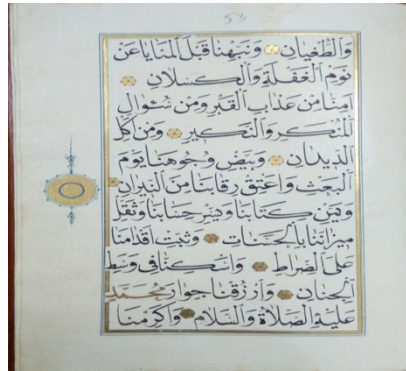 53
وَالطُّغْيَانِ وَنَبِّهْنَا قَبْلَ الْمَنَايَا عَنْ
نَوْمِ الْغَفْلَةِ وَالْكَسْلَانِ
آمِنَّا مِنْ عَذَابِ الْقَبْرِ وَمِنْ سُئُوَالِ
الْمُنْكَرِ وَالنَّكِيرِ وَمِنْ أَكْلِ
الدِّيدَانِ وَبَيِّضْ وُجُوهَنَا يَوْمَ
الْبَعْثِ وَاعْتِقْ رِقَابَنَا مِنَ النِّيرَانِ
وَيَمِّنْ كِتَابَنَا وَيَسِّرْ حِسَابَنَا وَثَقِّلْ
مِيزَانَنَا بِالْحَسَنَاتِ وَثَبِّتْ أَقْدَامَنَا
عَلَى الصِّرَاطِ وَاسْكِنَّا فِي وَسَطِ
الْجِنَانِ وَارْزُقْنَا جِوَارَ مُحَمَّدٍ
عَلَيْهِ الصَّلَاةُ وَالسَّلَامُ وَاكْرِمْنَا